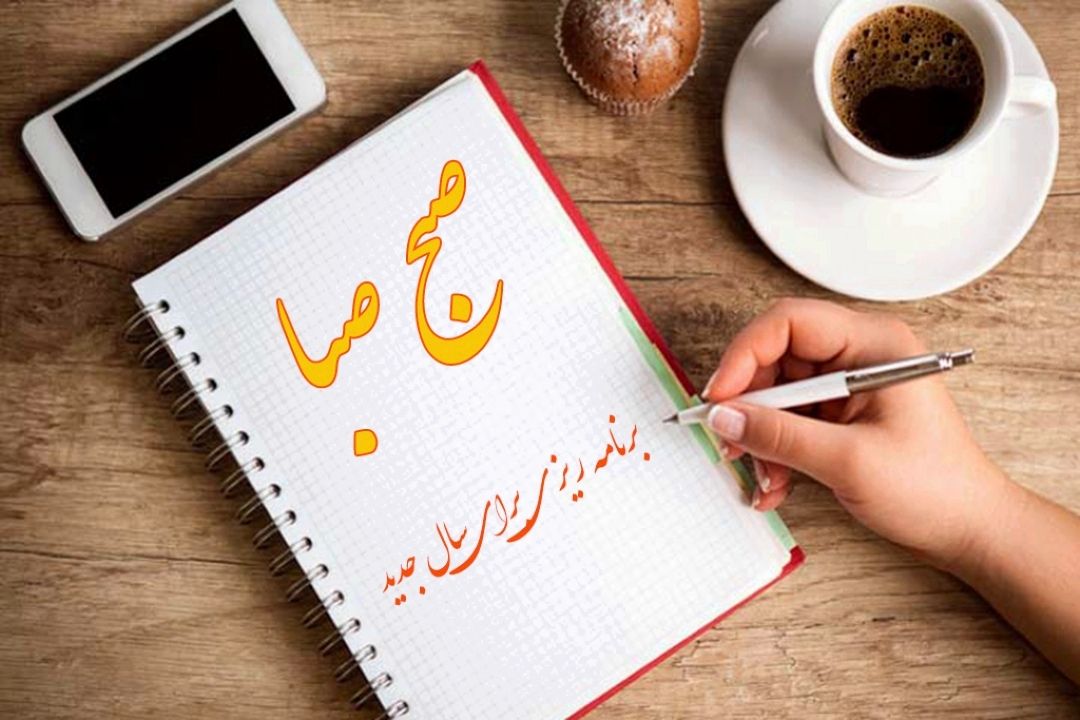 صبح صبا
برنامه ریزی برای سال جدید